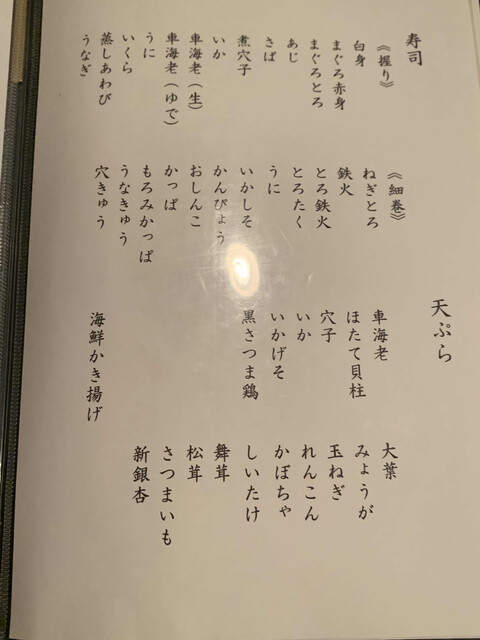 寿司
《握り》
白身
まぐろ赤身
まぐろとろ
あじ
さば
煮穴子
いか
車海老(生)
車海老(ゆで)
うに
いくら
蒸しあわび
うなぎ
《細巻》
ねぎとろ
鉄火
とろ鉄火
とろたく
うに
いかしそ
かんぴょう
おしんこ
かっぱ
もろみかっぱ
うなきゅう
穴きゅう
天ぷら
車海老
ほたて貝柱
穴子
いか
いかげそ
黒さつま鶏
海鮮かき揚げ
大葉
みょうが
玉ねぎ
れんこん
かぼちゃ
しいたけ
舞茸
松茸
さつまいも
新銀杏